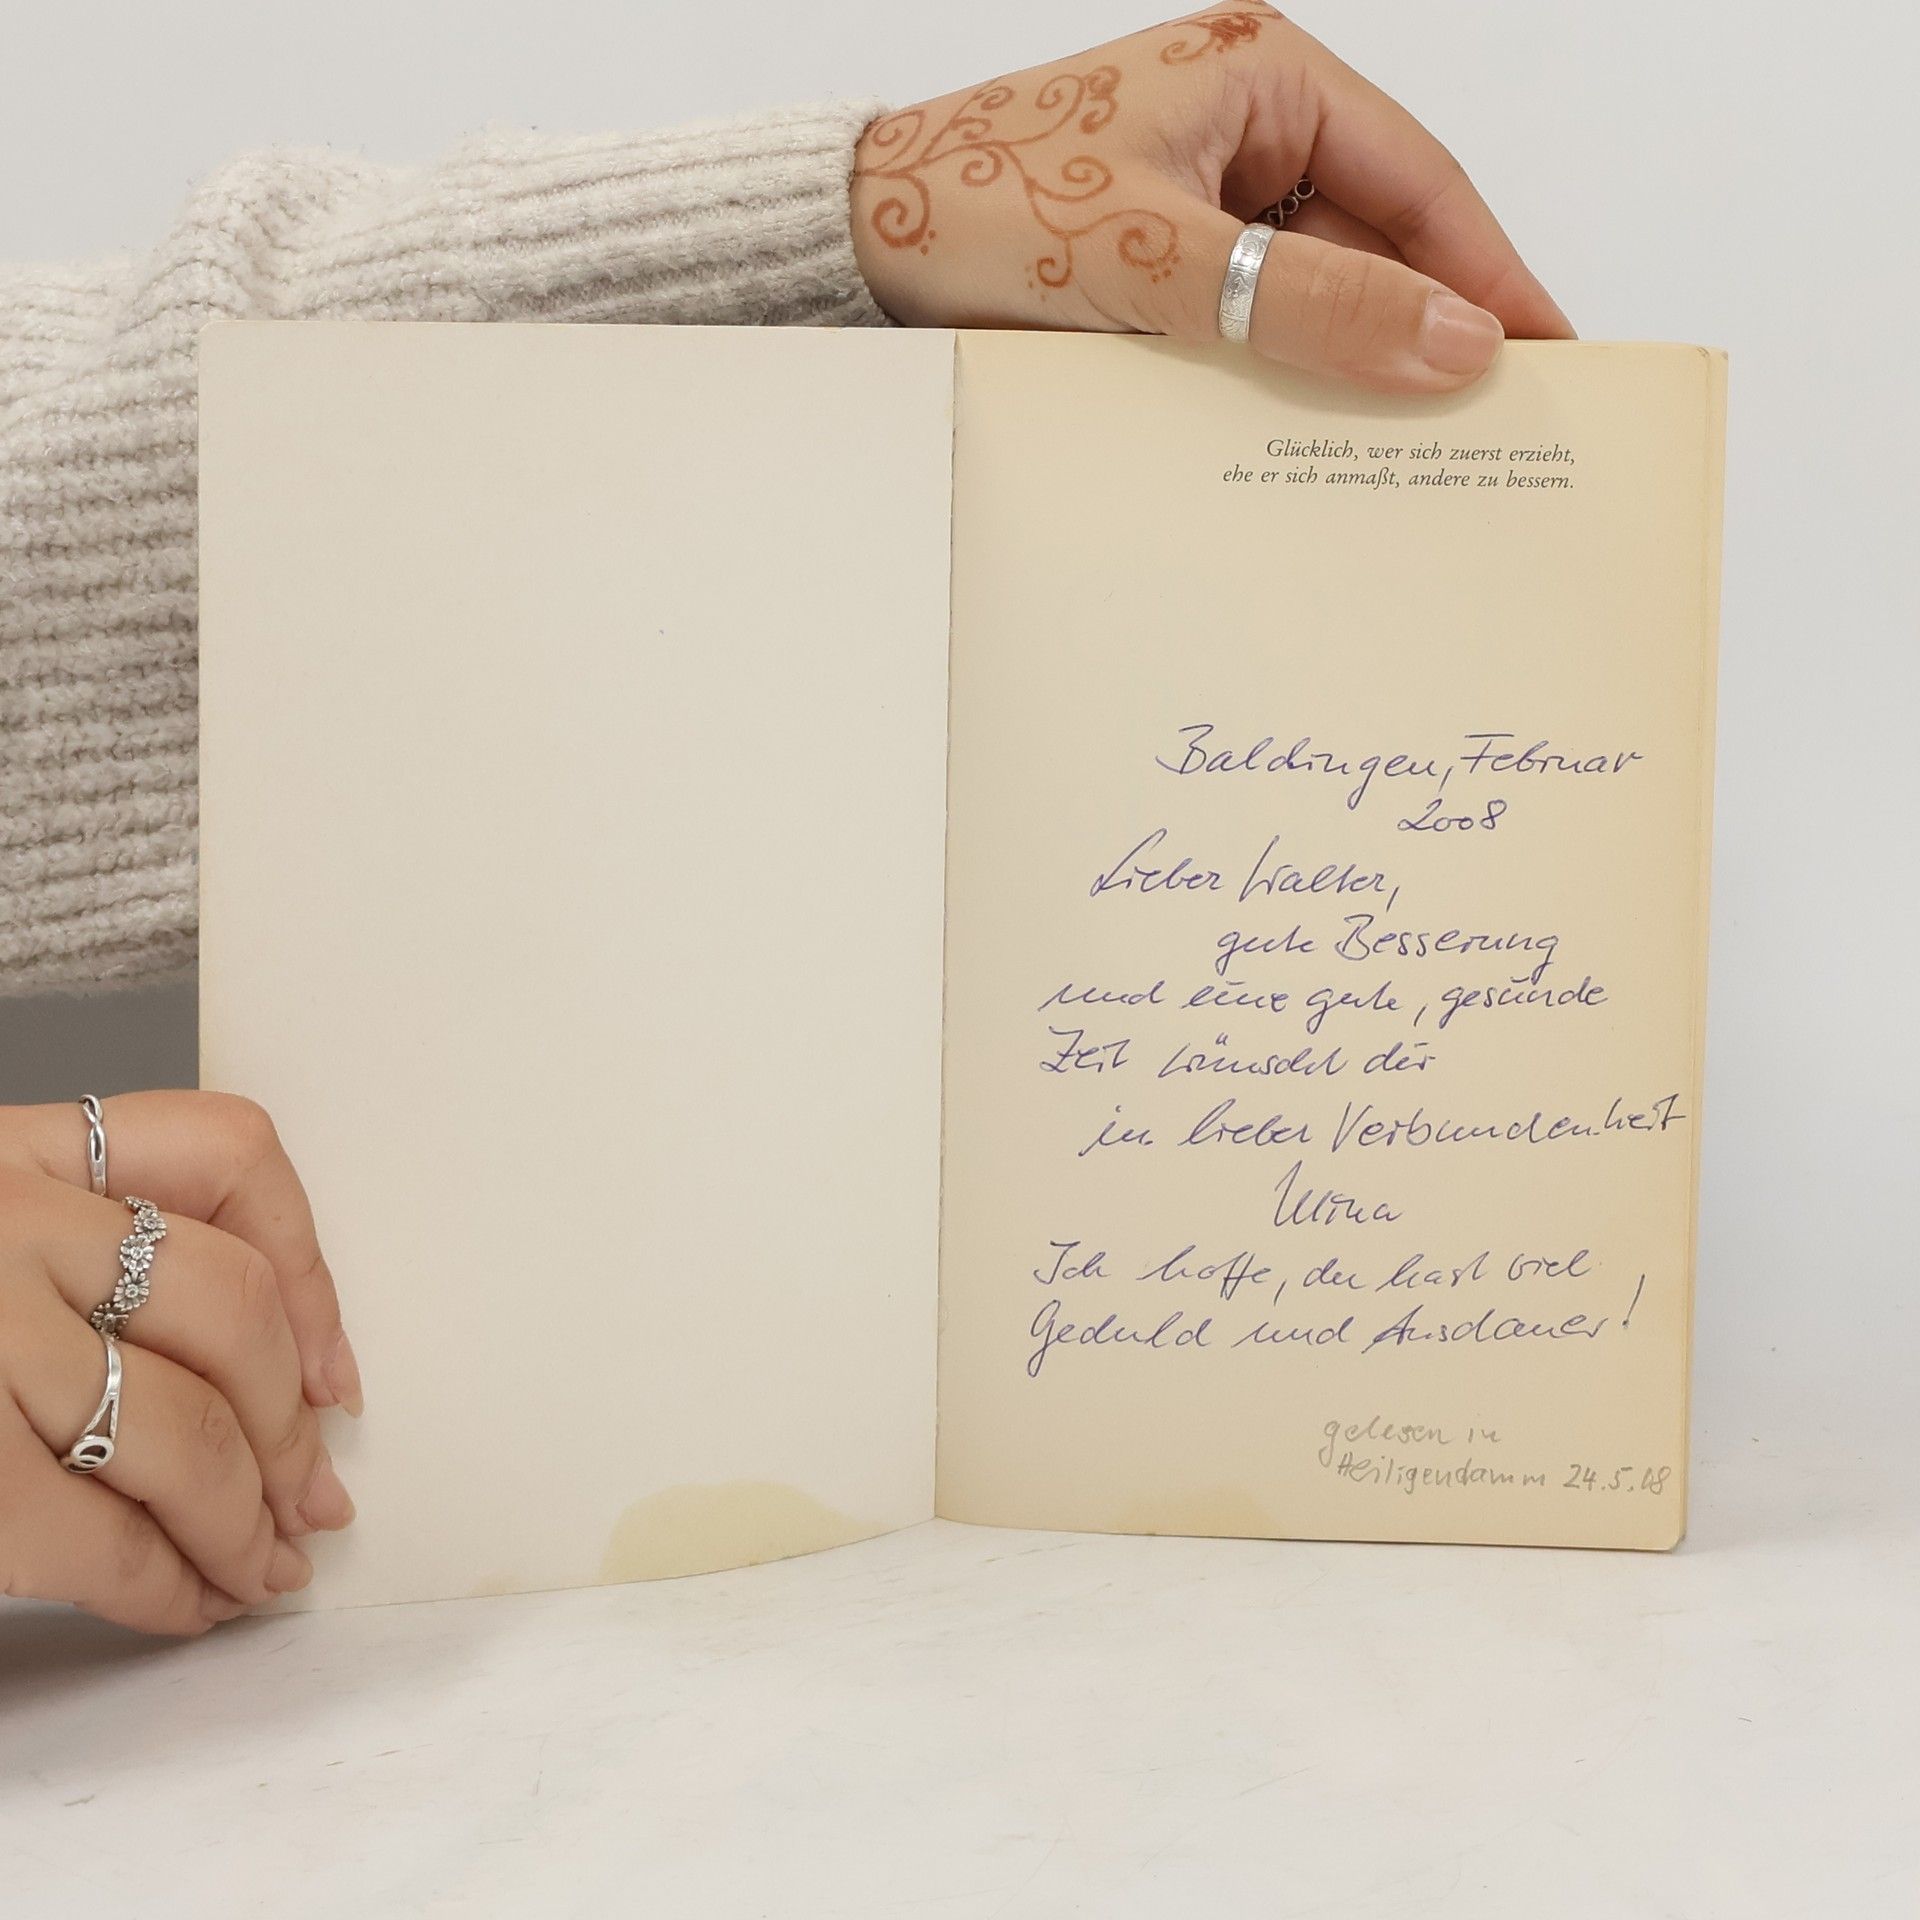 Glücklich, wer sich zuerst erzieht,
ehe er sich anmaßt, andere zu bessern.
Baldingen, Februar
2008
Lieber Walter,
gute Besserung
und eine gute, gesunde
Zeit wünscht dir
in lieber Verbundenheit
Mina
Ich hoffe, du hast viel
Geduld und Ausdauer!
gelesen in
Heiligendamm 24.5.08